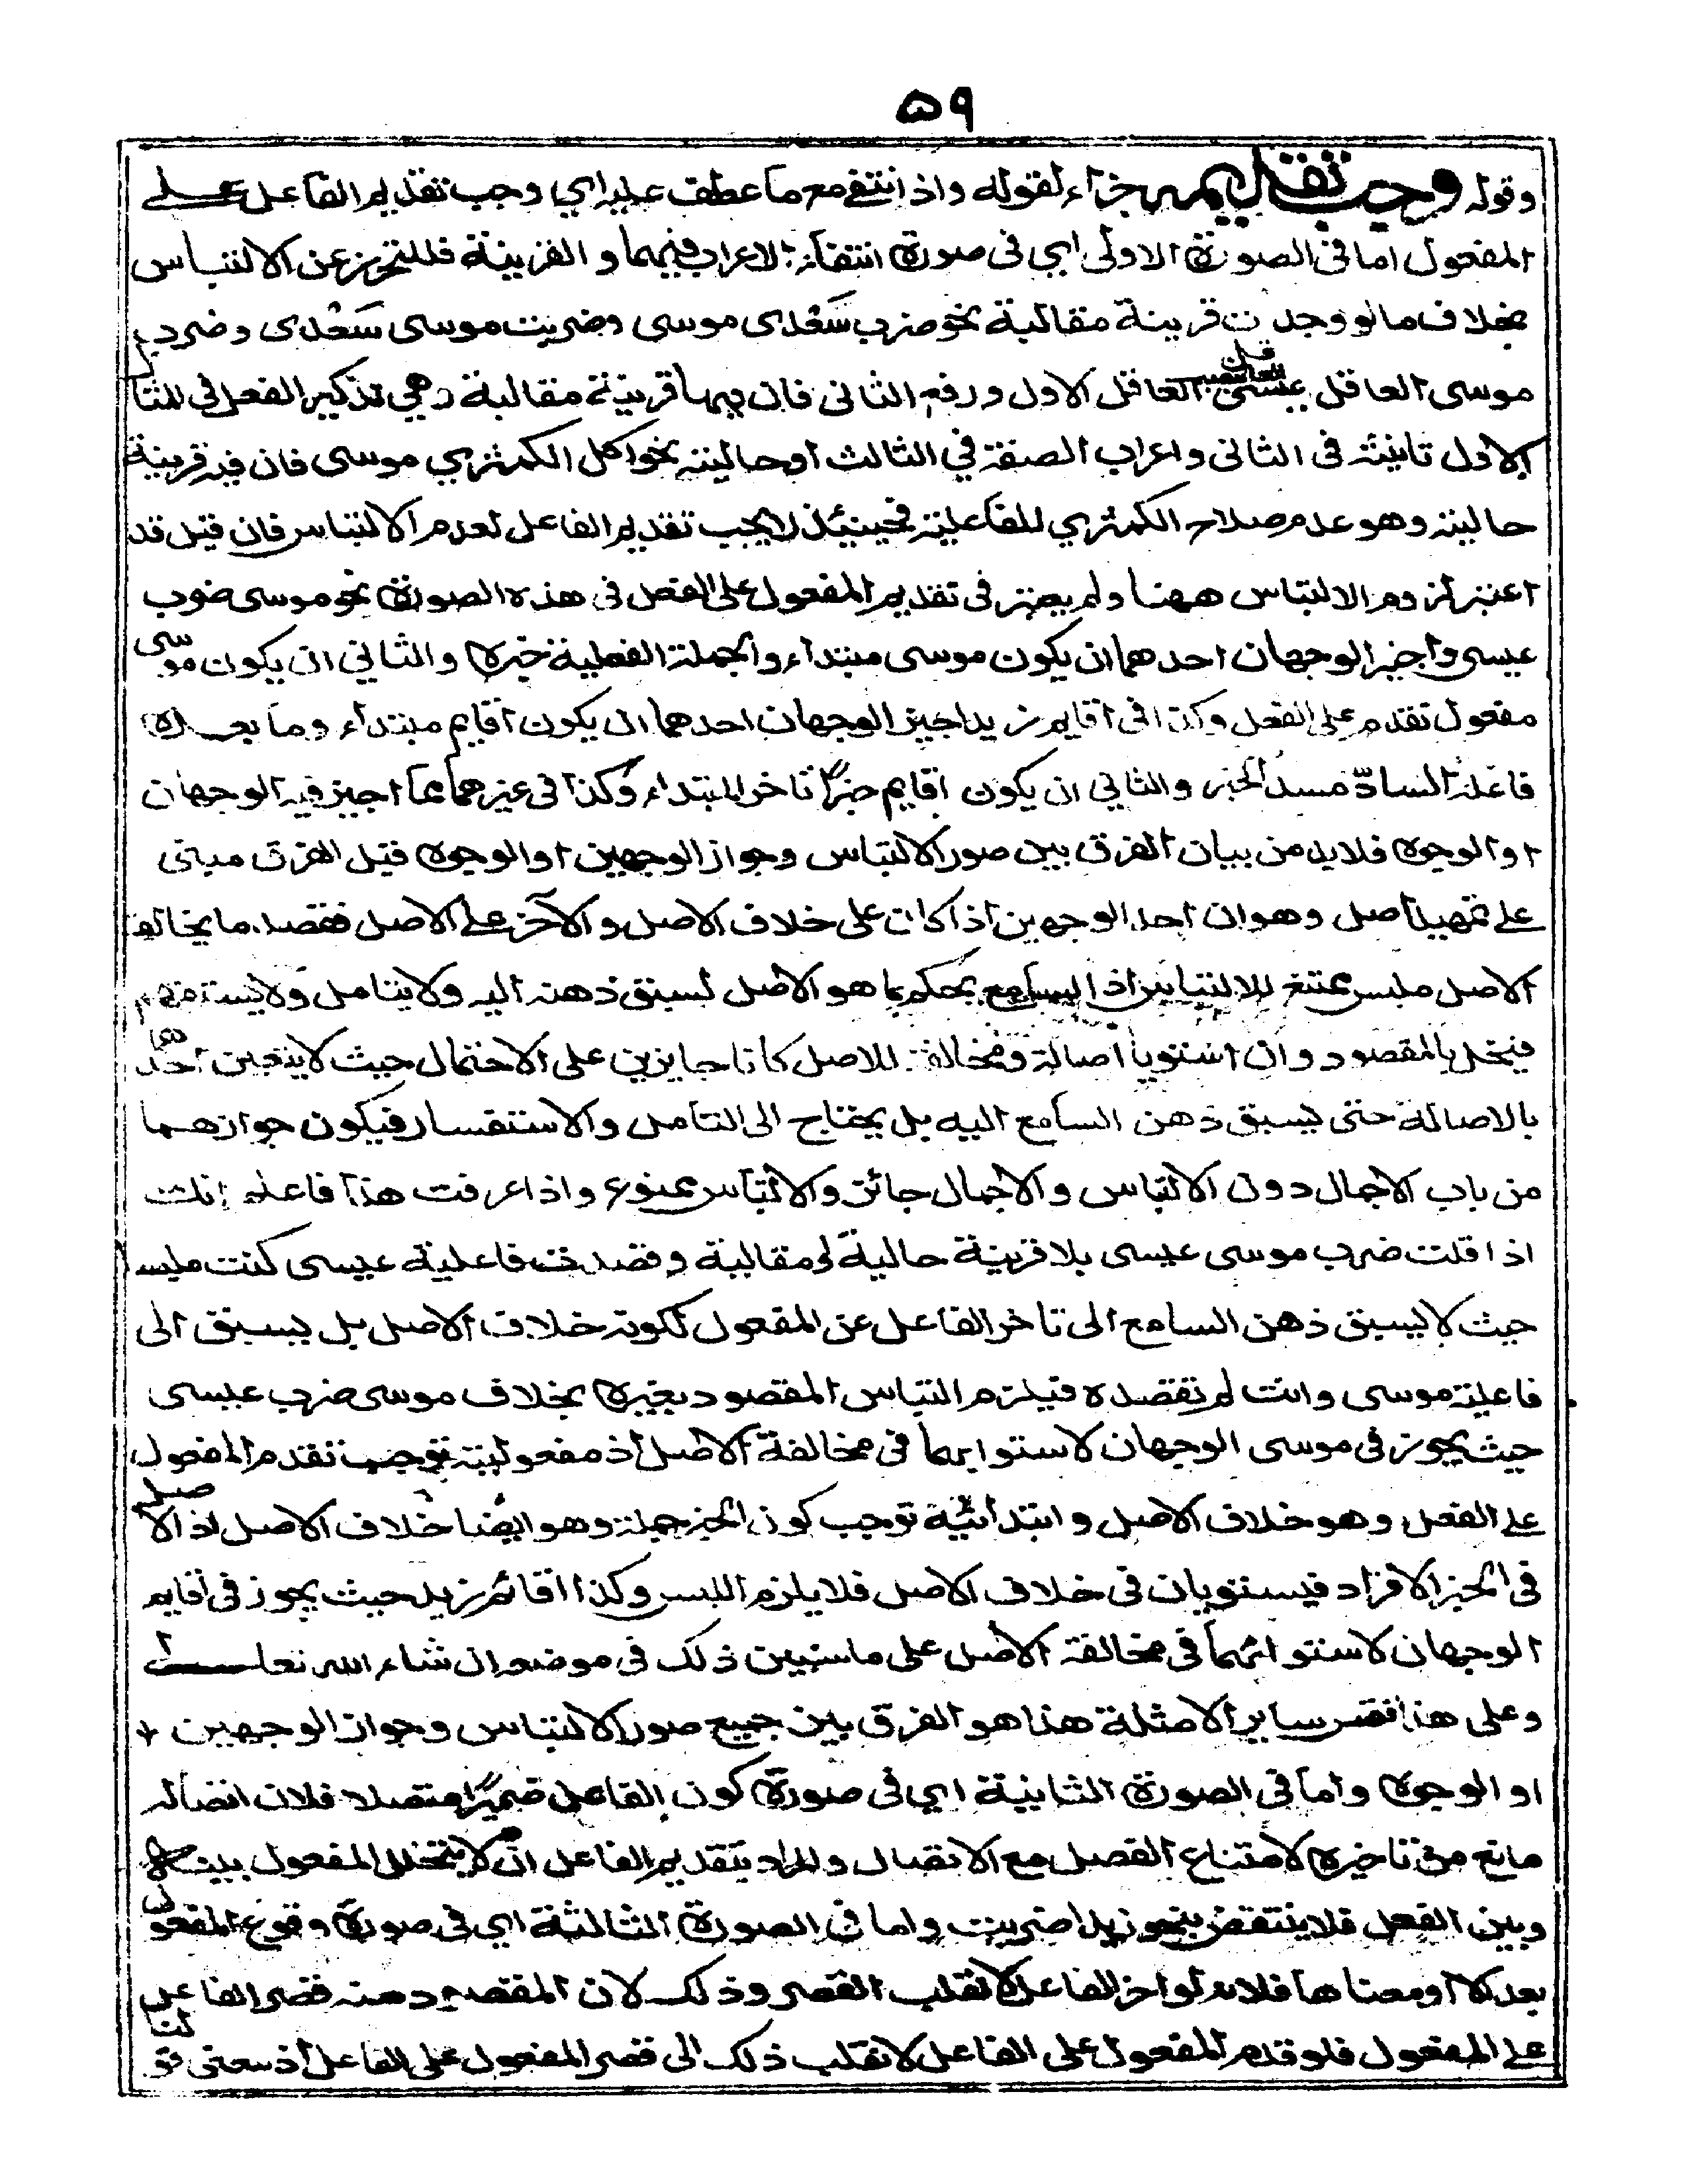 ۵۹
وقوله وجب تقديمه جزاء لقوله واذ انتفى مع ما عطف عليه اي وجب تقديم الفاعل على
المفعول اما في الصورة الاولى اي في صورة انتفاء الاعراب فيهما و القرينة فللتحرز عن الالتباس
بخلاف ما لو وجدت قرينة مقالية نحو ضرب سَعْدى موسى وضربت موسى سَعْدى وضرب
موسى العاقل عيسى العاقل الاول ورفع الثانى فان فيها قرينة مقالية وهي تذكير الفعل في المثال
الاول تانيثه في الثانى واعراب الصفة في الثالث او حالية نحو اكل الكمثري موسى فان فيه قرينة
حالية وهو عدم صلاح الكمثري للفاعلية فحينئذ لا يجب تقديم الفاعل لعدم الالتباس فان قيل قد
اعتبر لزوم الالتباس ههنا ولم يعتبر فى تقديم المفعول على الفعل فى هذه الصورة نحو موسى ضرب
عيسى واجيز الوجهان احدهما ان يكون موسى مبتداء والجملة الفعلية خبره والثاني ان يكون موسى
مفعول تقدم على الفعل وكذا فى اقايم زيد اجيز الوجهان احدهما ان يكون اقايم مبتداء وما بعده
فاعله السادّ مسد الخبر والثاني ان يكون اقايم خبرًا تاخر المبتداء وكذا فى غيرهما مما اجيز فيه الوجهان
او الوجوه فلابد من بيان الفرق بين صور الالتباس وجواز الوجهين او الوجوه قيل الفرق مبنى
على تمهيد اصل وهو ان احد الوجهين اذا كان على خلاف الاصل والآخر على الاصل فقصد ما يخالف
الاصل ملبس ممتنع للالتباس اذ السامع يحكم بما هو الاصل لسبق ذهنه اليه ولا يتامل ولا يستفهم
فيخل بالمقصود وان استويا اصالة ومخالفة للاصل كانا جايزين على الاحتمال حيث لا يتعين احدهما
بالاصالة حتى يسبق ذهن السامع اليه بل يحتاج الى التامل والاستفسار فيكون جوازهما
من باب الاجمال دون الالتباس والاجمال جائز والالتباس ممنوع واذا عرفت هذا فاعلم انك
اذا قلت ضرب موسى عيسى بلا قرينة حالية او مقالية وقصدت فاعلية عيسى كنت ملبسا
حيث لا يسبق ذهن السامع الى تاخر الفاعل عن المفعول لكونه خلاف الاصل بل يسبق الى
فاعلية موسى وانت لم تقصده فيلزم التباس المقصود بغيره بخلاف موسى ضرب عيسى
حيث يجوز فى موسى الوجهان لاستوايهما فى مخالفة الاصل اذ مفعوليته توجب تقدم المفعول
على الفعل وهو خلاف الاصل وابتدائية توجب كون الخبر جملة وهو ايضا خلاف الاصل اذ الاصل
فى الخبر الافراد فيستويان فى خلاف الاصل فلا يلزم اللبس وكذا اقائم زيد حيث يجوز فى اقايم
الوجهان لاستوائهما فى مخالفة الاصل على ما سنبين ذلك فى موضعه ان شاء الله تعالى
وعلى هذا فقس ساير الامثلة هذا هو الفرق بين جميع صور الالتباس وجواز الوجهين
او الوجوه واما فى الصورة الثانية اي فى صورة كون الفاعل ضميرًا متصلا فلان اتصاله
مانع من تاخيره لامتناع الفصل مع الاتصال والمراد بتقديم الفاعل ان لا يتخلل المفعول بينه
وبين الفعل فلا ينتقض بنحو زيدا ضربت واما فى الصورة الثالثة اي فى صورة وقوع المفعول
بعد الا او معناها فلانه لو اخر الفاعل لانقلب القصر وذلك لان المقصود منه قصر الفاعل
على المفعول فلو قدم المفعول على الفاعل لانقلب ذلك الى قصر المفعول على الفاعل اذ معنى قولنا